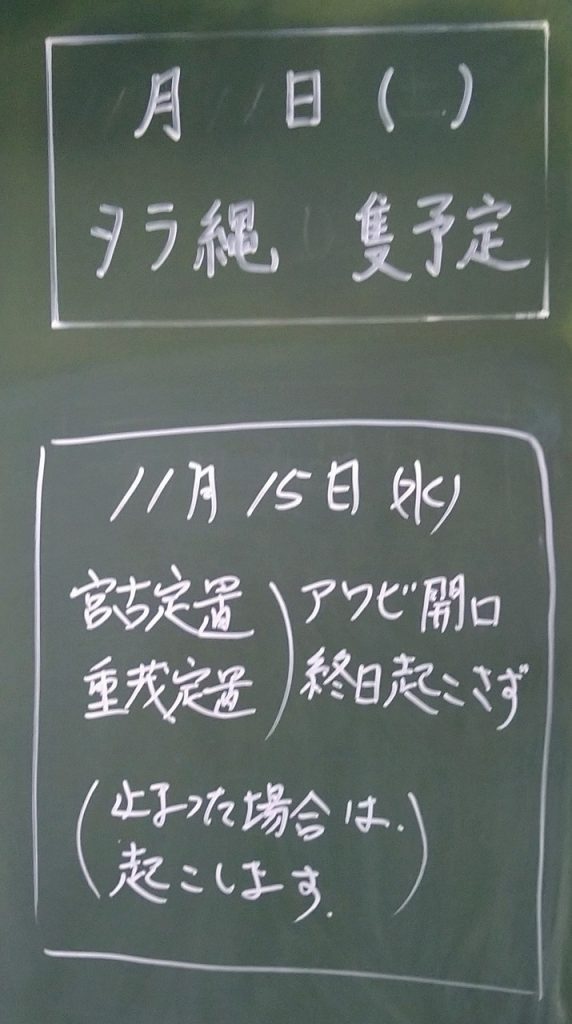 月 日 ( )
タラ縄 隻予定
11月15日(水)
宮古定置 ) アワビ開口
重茂定置 ) 終日起こさず
(止まった場合は、
起こします。)